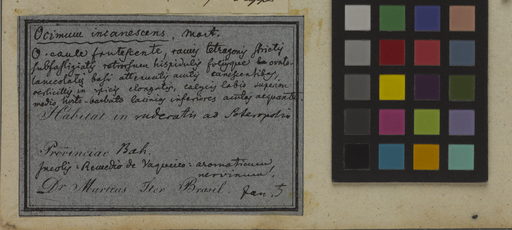 Ocimum incanescens, mart.
O. caule frutescente, ramis tetragonis strictis
subfastigiatis retrorsum hispidulis foliisque ovato-
lanceolatis basi attenuatis acutis canescentibus,
verticillis in spicis elongatis, calycis labio superiore
medio hirto-barbato lacinias inferiores acutas aequante.
Habitat in ruderatis ad Soteropolin
Provinciae Bah.
Incolis: Remedio de Vaqueiro: aromaticum,
nervinum.
Dr. Martius Iter Brasil Jan.